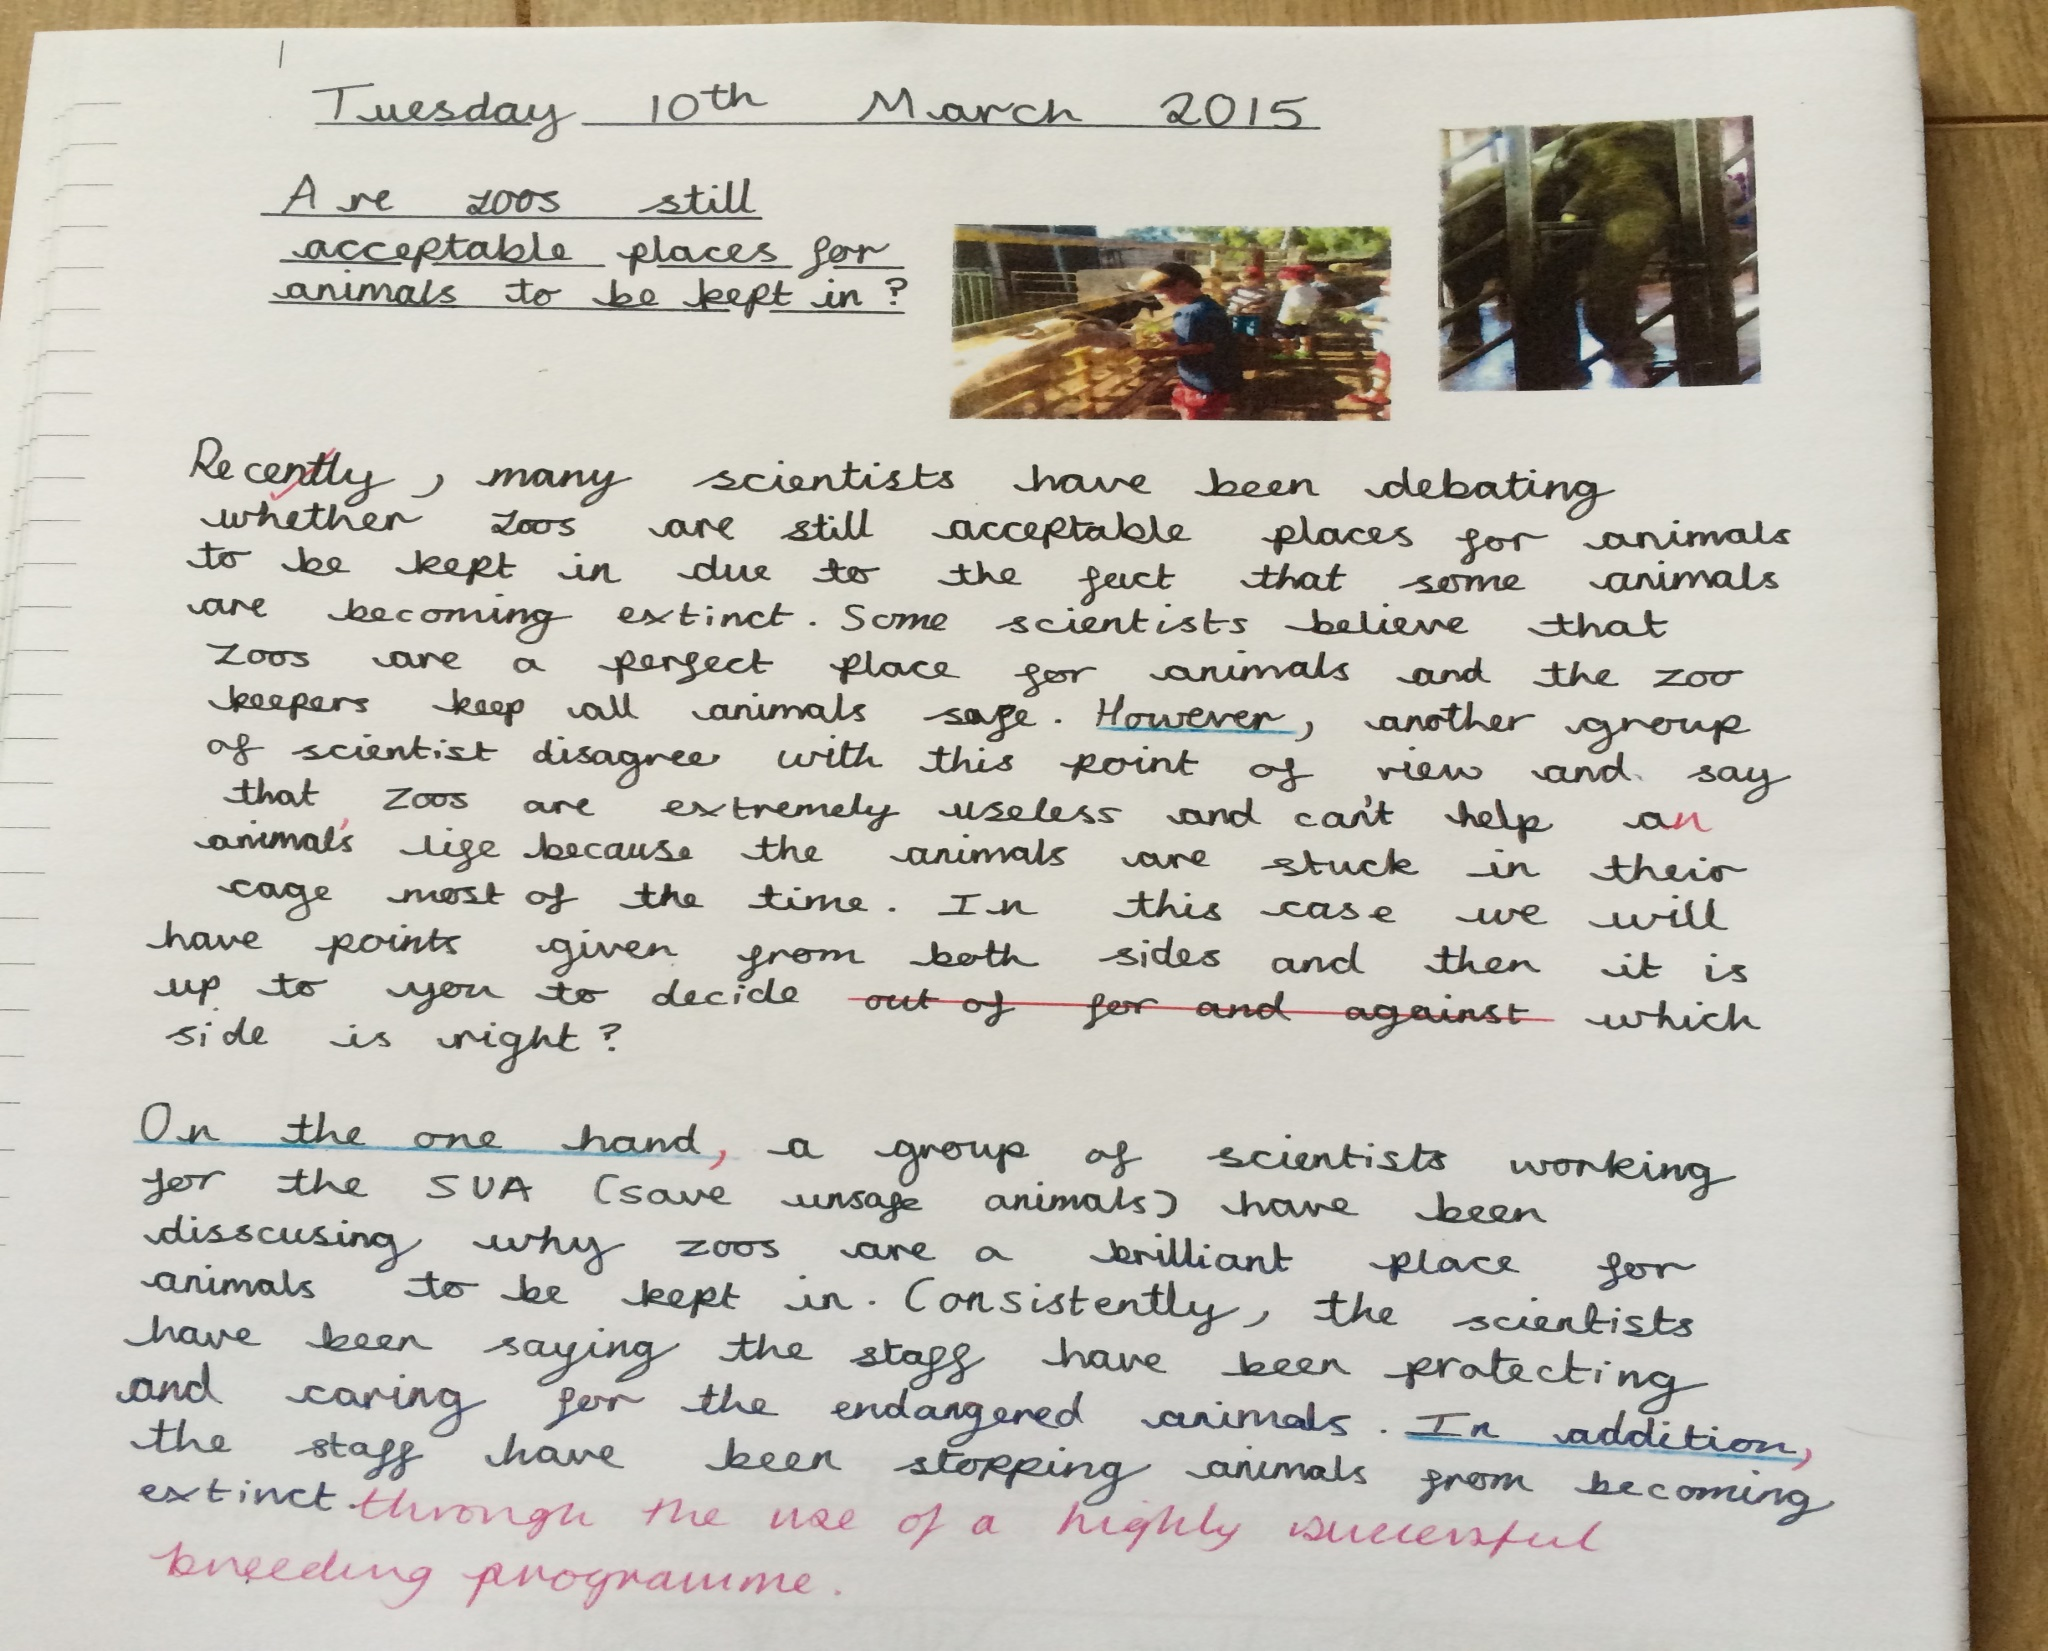 Tuesday 10th March 2015
Are zoos still
acceptable places for
animals to be kept in?
Recently, many scientists have been debating
whether zoos are still acceptable places for animals
to be kept in due to the fact that some animals
are becoming extinct. Some scientists believe that
zoos are a perfect place for animals and the zoo
keepers keep all animals safe. However, another group
of scientist disagree with this point of view and say
that zoos are extremely useless and can't help an
animal's life because the animals are stuck in their
cage most of the time. In this case we will
have points given from both sides and then it is
up to you to decide out of for and against which
side is right?
On the one hand, a group of scientists working
for the SUA (save unsafe animals) have been
disscusing why zoos are a brilliant place for
animals to be kept in. Consistently, the scientists
have been saying the staff have been protecting
and caring for the endangered animals. In addition,
the staff have been stopping animals from becoming
extinct. through the use of a highly successful
breeding programme.